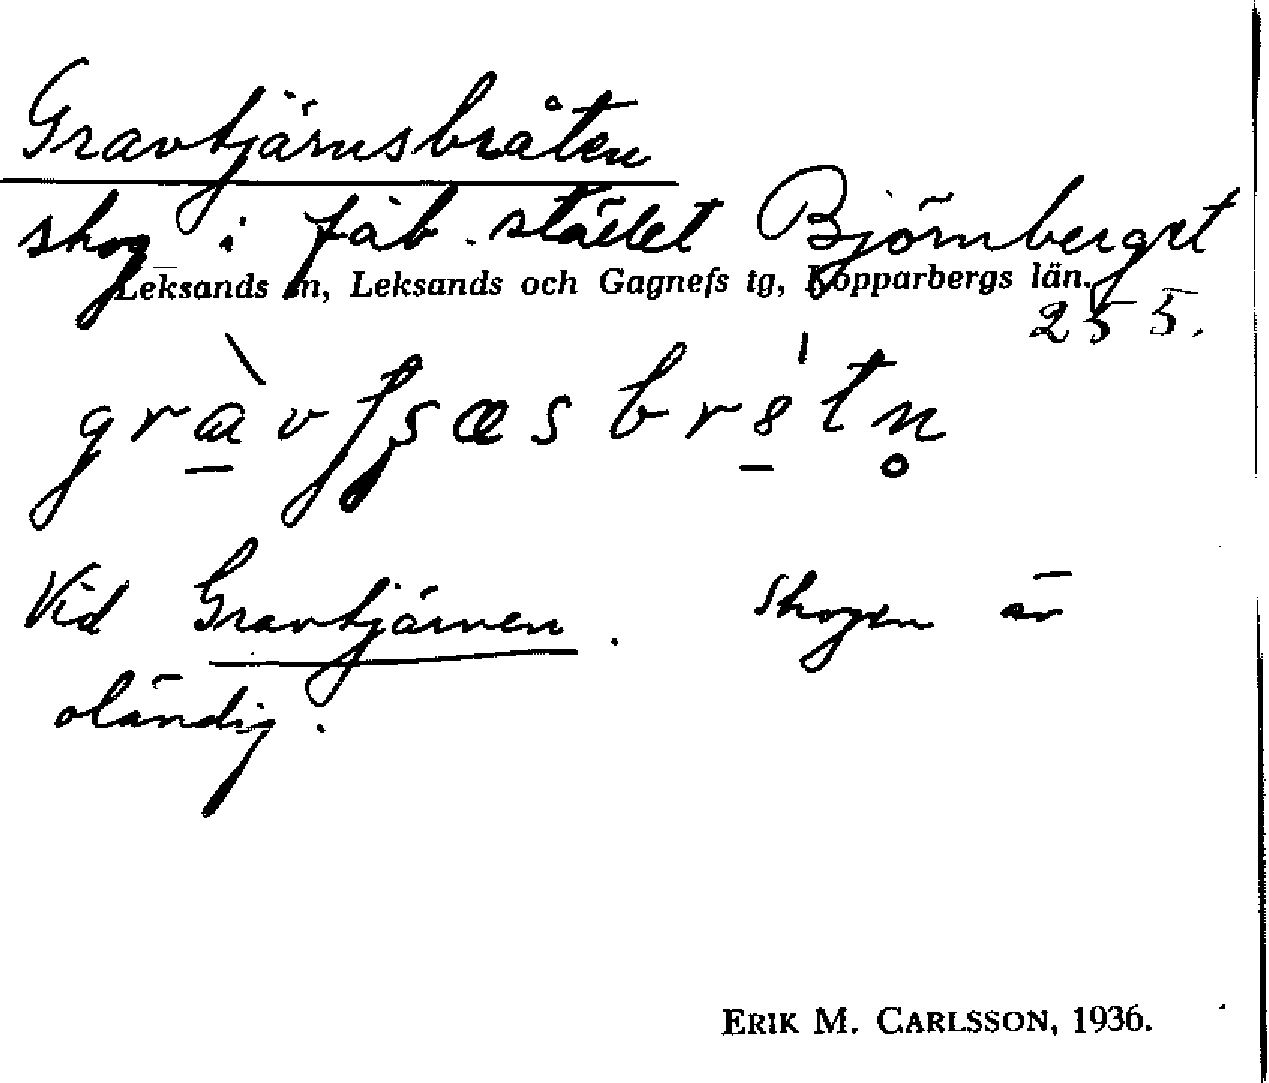 Gravtjärnsbråten
skog i fäb. stället Björnberget
Leksands sn, Leksands och Gagnefs tg, Kopparbergs län.
255.
Vid Gravtjärnen. Skogen är
oländig.
ERIK M. CARLSSON, 1936.